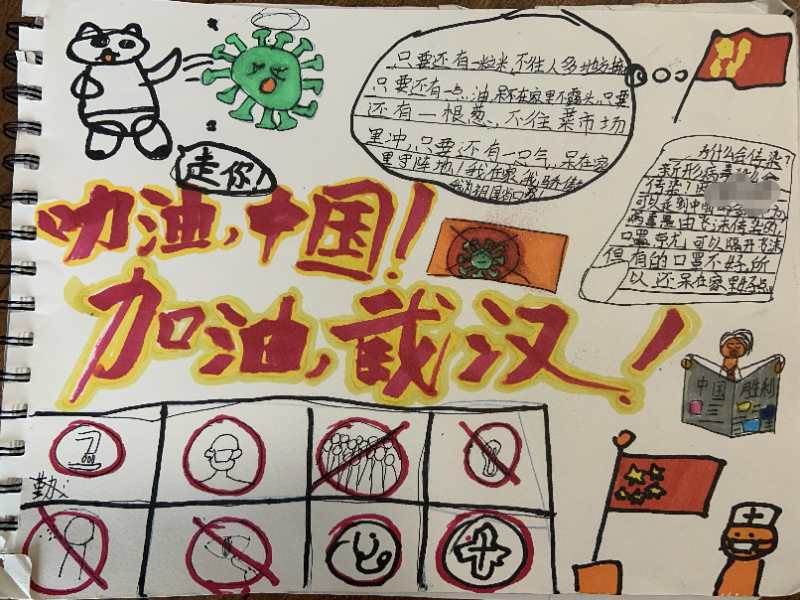 只要还有一粒米,不往人多地方挤
只要还有一点油,呆在家里不露头,只要
还有一根葱、不往菜市场
里冲,只要还有一口气,呆在家
里守阵地!我在家,我骄傲
我为祖国省口罩
走你!
为什么会传染?
新形病毒
传染?
可以走到中
病毒是由飞沫传染的
口罩 可以隔开飞沫
但有的口罩不好,所
以还呆在家里好点。
加油,中国!
加油,武汉!
中国 胜利
勤